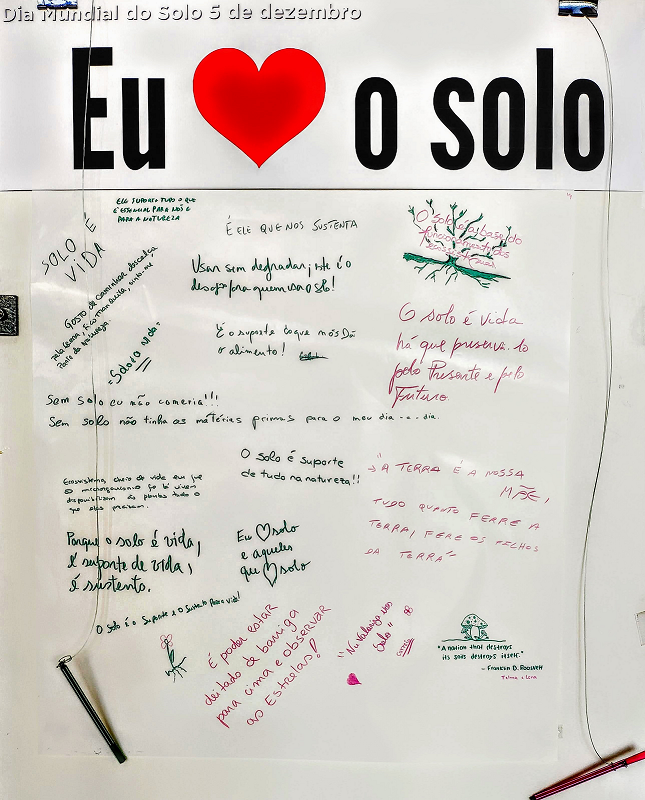 Dia Mundial do Solo 5 de dezembro
Eu o solo
ELE SUPORTA TUDO O QUE
É ESSENCIAL PARA NÓS E
PARA A NATUREZA
SOLO É
VIDA
É ELE QUE NOS SUSTENTA
O solo é a base do
funcionamento dos
ecossistemas
Gosto de caminhar descalça
pela
Usar sem degradar, este é o
desejo para quem usa o solo!
É o suporte e o que nos Dá
o alimento!
"Solo é vida"
O solo é vida
há que preservá-lo
pelo Presente e pelo
Futuro.
Sem solo eu não comeria!!!
Sem solo não tinha as matérias primas para o meu dia-a-dia.
O solo é suporte
de tudo na natureza!!
"A TERRA É A NOSSA
MÃE,
TUDO QUANTO FERRE A
TERRA, FERE OS FILHOS
DA TERRA"
Ecossistema, cheio de vida em que
os microrganismos
disponibilizam às plantas tudo o
que elas precisam.
Porque o solo é vida,
é suporte de vida,
é sustento.
Eu solo
e aqueles
que solo
O Solo é o Suporte e o Sustento Para a vida!
É poder estar
deitado de barriga
para cima e observar
as Estrelas!
solo"
"A nation that destroys
its soils destroys itself."
- Franklin D. Roosvelt
Telma e Lena